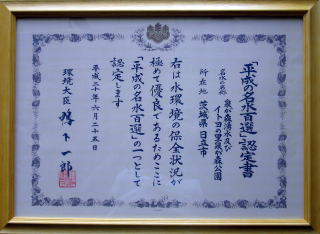 「平成の名水百選」認定書
名水の名称
泉が森湧水及び
イトヨの里泉が森公園
所在地
茨城県日立市
右は水環境の保全状況が
極めて優良であるためここに
「平成の名水百選」の一つとして
認定します
平成二十年六月二十五日
環境大臣
鴨下一郎